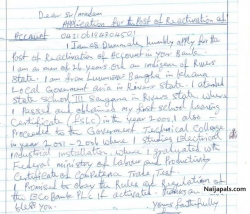 Dear Sir/madam
Application for the Post of Reactivation of
Account 0431018170 4501
I Jan EB Dummale humbly apply for the
Post of Reactivation of Account in your Bank.
I am a man of 26 years old an indigen of Rivers
State. I am from Luumuene Bangha in Khana
Local Government Area in Rivers State. I attend
State School III Bangama in Rivers State where
I Passed and obtained my first School Leaving
Certificate (FSLC) in the year 2000, I also
Proceeded to the Government Technical College
in year 2001 - 2006 where I studied Electrical
Industrial installation where I graduated with
Federal Ministry of Labour and Productivity
Certificate of Competence Trade Test.
I Promised to obey the Rules and Regulation of
the Bank PLC if activated
bless you
Yours faithfully
Naijapals.com